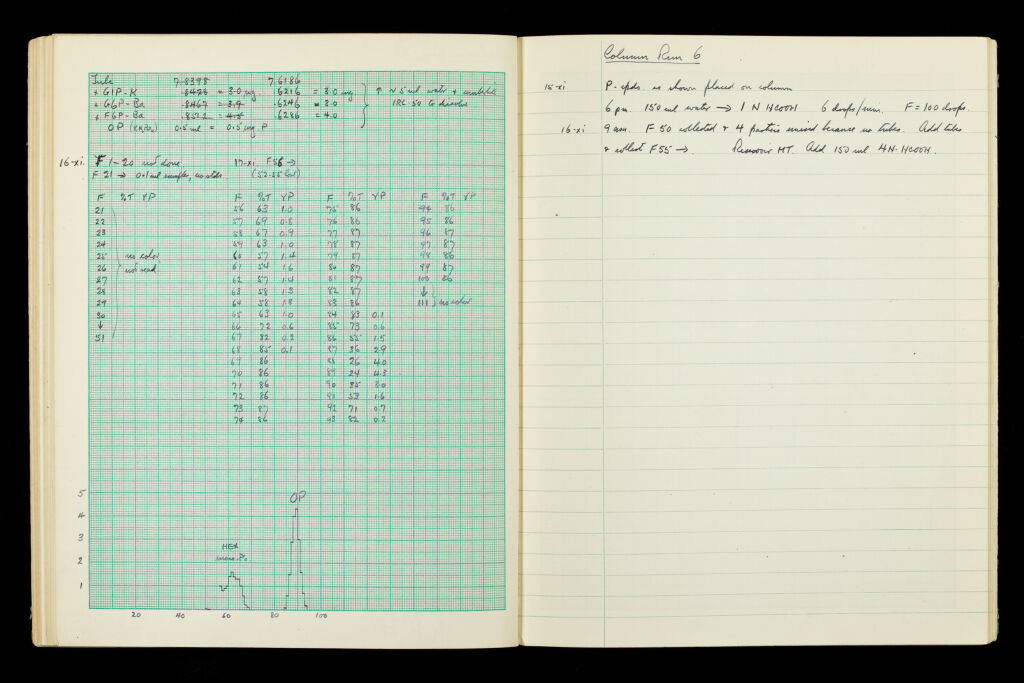 Tube 7.8398 7.6186
+ G1P-K .8428 = 3.0 mg .6216 = 3.0 mg
+ G6P-Ba .8467 = 3.9 .6246 = 3.0
+ F6P-Ba .8512 = 4.5 .6286 = 4.0
OP (KH2PO4) 0.5 ml = 0.5 mg P
↑ N 5 ml water +
IRC-50 to dissolve
16-xi. F 1-20 not done. 17-xi. F56 →
F 21 → 0.1 ml samples, no stds. (52-55 lost)
F %T γP
21
22
23
24
25 no color,
26 not read.
27
28
29
30
↓
51
F %T γP
56 63 1.0
57 69 0.8
58 67 0.9
59 63 1.0
60 57 1.4
61 54 1.6
62 57 1.4
63 58 1.3
64 58 1.3
65 63 1.0
66 72 0.6
67 82 0.2
68 85 0.1
69 86
70 86
71 86
72 86
73 87
74 86
F %T γP
75 86
76 86
77 87
78 87
79 87
80 87
81 87
82 87
83 86
84 83 0.1
85 73 0.6
86 55 1.5
87 36 2.9
88 26 4.0
89 24 4.3
90 35 3.0
91 53 1.6
92 71 0.7
93 82 0.2
F %T γP
94 86
95 86
96 87
97 87
98 86
99 87
100 86
↓
111 no color
5
4
3
2
1
HEX
mono-P.
OP
20 40 60 80 100
Column Run 6
15-xi P-cpds. as shown placed on column
6 pm. 150 ml water → 1 N HCOOH 6 drops/min. F = 100 drops.
16-xi 9 am. F 50 collected + 4 fractions missed because no tubes. Add tubes
& collect F55 →. Reservoir MT. Add 150 ml 4N-HCOOH.